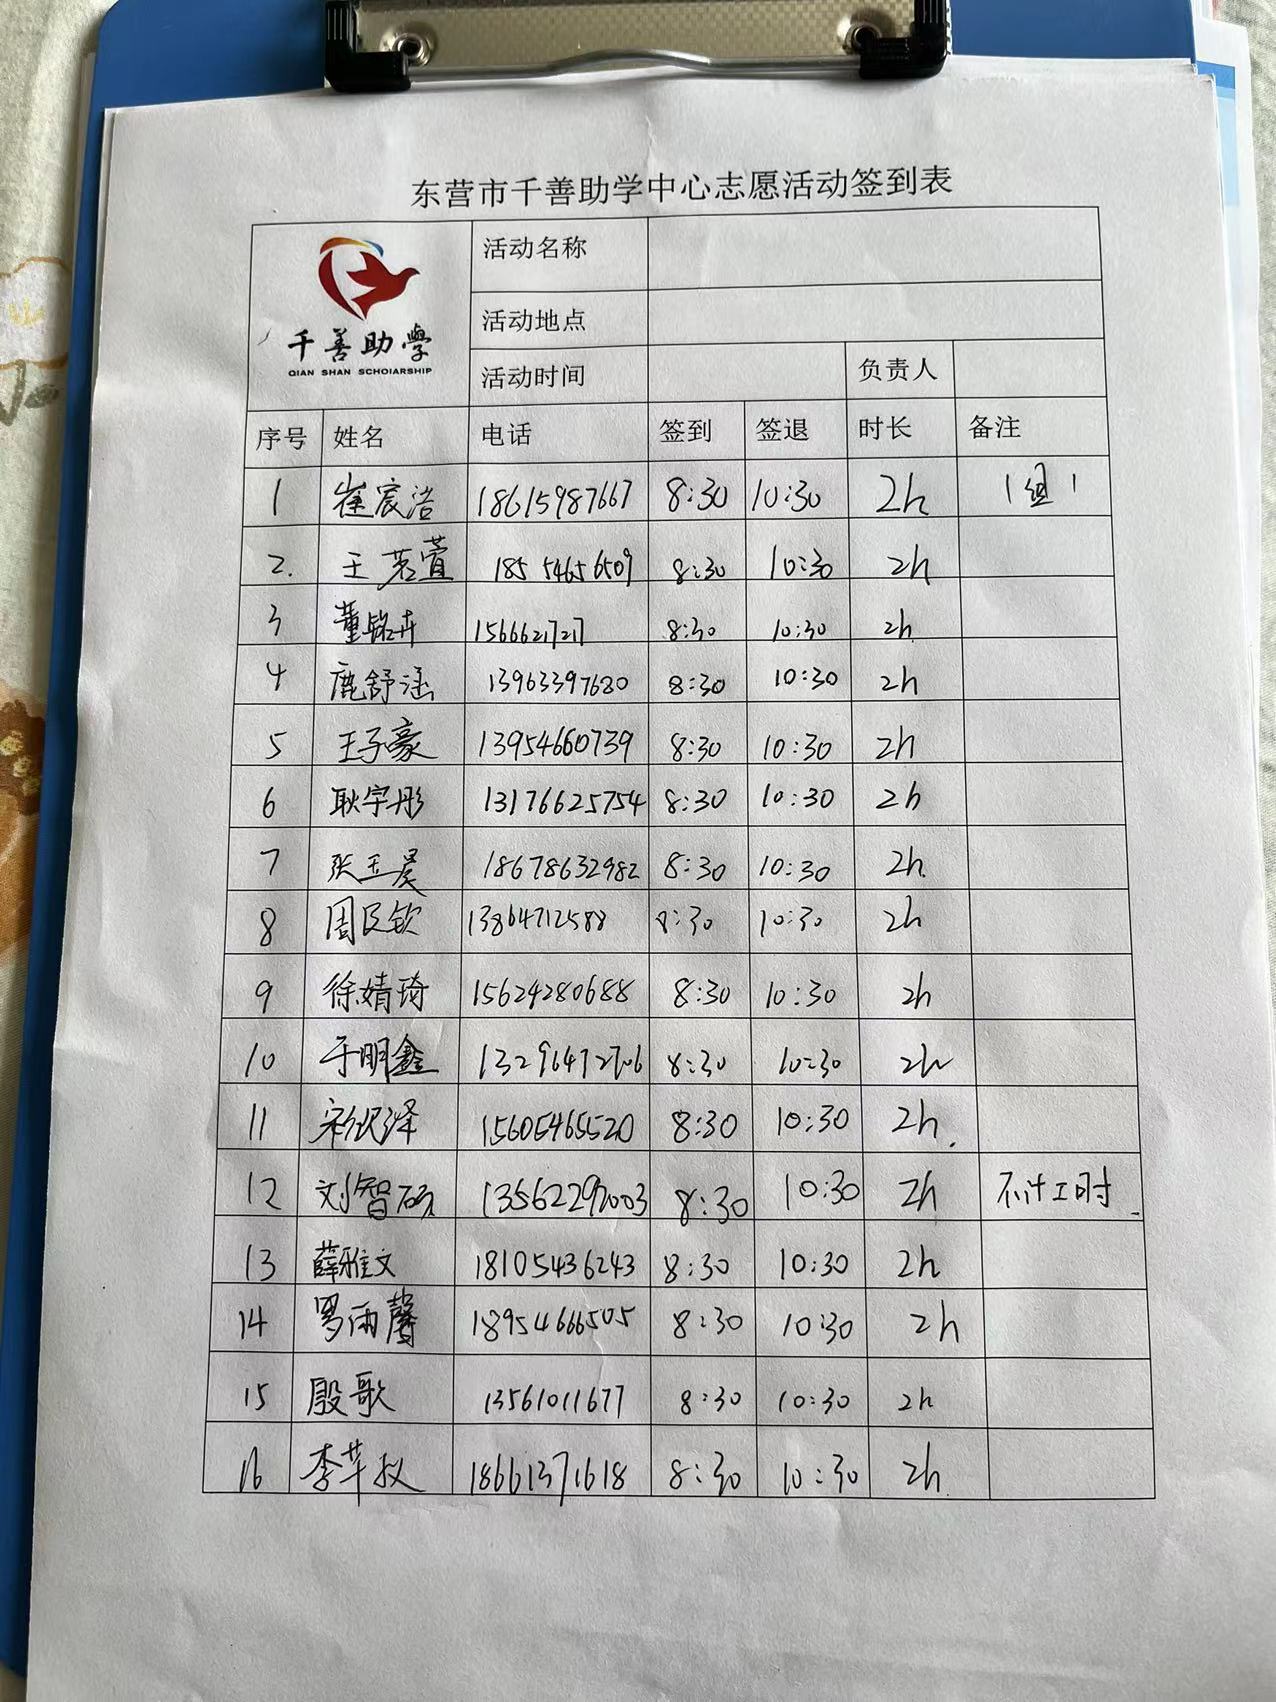 东营市千善助学中心志愿活动签到表
千善助学
QIAN SHAN SCHOIARSHIP
活动名称
活动地点
活动时间 负责人
序号 姓名 电话 签到 签退 时长 备注
1 崔宸浩 18615987667 8:30 10:30 2h 1组1
2. 王茗萱 18554656509 8:30 10:30 2h
3 董铭卉 1566621727 8:30 10:30 2h
4 鹿舒涵 13963397680 8:30 10:30 2h
5 王子豪 13954660739 8:30 10:30 2h
6 耿宇彤 13176625754 8:30 10:30 2h
7 张玉昊 18678632982 8:30 10:30 2h
8 周臣钦 13864712588 8:30 10:30 2h
9 徐婧琦 15624280688 8:30 10:30 2h
10 于明鑫 13296472706 8:30 10:30 2h
11 15605465520 8:30 10:30 2h.
12 刘智硕 13562292003 8:30 10:30 2h 不计工时.
13 薛雅文 18105436243 8:30 10:30 2h
14 罗雨馨 18954666505 8:30 10:30 2h
15 殷歌 13561011677 8:30 10:30 2h
16 李苹 18661371618 8:30 10:30 2h